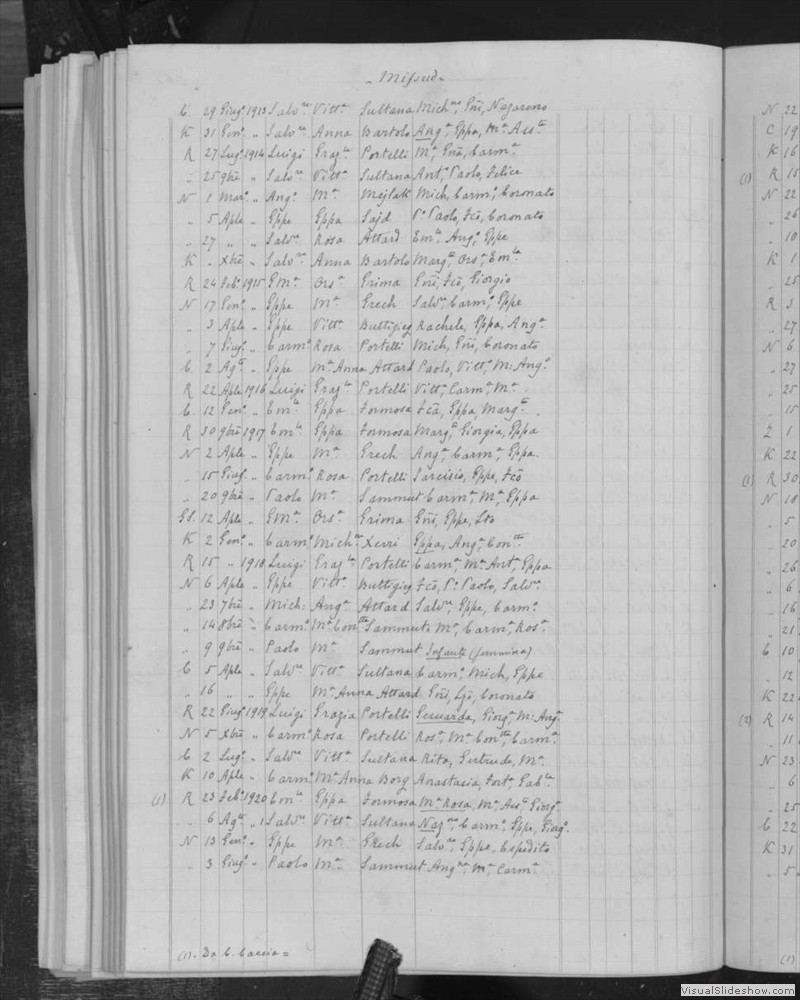 Mifsud
C. 29 Giug. 1913 Salv.re Vitt.a Sultana Mich.na, Gñi, Nazareno
K 31 Gen.o " Salv.re Anna Bartolo Ang.a, Gppa, M.a Ass.ta
R 27 Lug.o 1914 Luigi Graz.la Portelli M.a, Gña, Carm.a
" 25 9bre " Salv.re Vitt.a Sultana Ant.a, Paolo, Felice
N 1 Mar.o " Ang.o M.a Mejlak Mich, Carm.o, Coronato
" 5 Aple " Gppe Gppa Sajd P.o Paolo, Fcõ, Coronato
" 27 " " Salv.re Rosa Attard Em.le, Ang.o, Gppe
K " Xbre " Salv.re Anna Bartolo Marg.ta, Ors.a, Em.la
R 24 Feb.o 1915 G.M.a Ors.a Grima Gñi, Fcõ, Giorgio
N 17 Gen.o " Gppe M.a Grech Salv.re, Carm.o, Gppe
" 3 Aple " Gppe Vitt.a Buttigieg Rachele, Gppa, Ang.a
" 7 Giug.o " Carm.o Rosa Portelli Mich, Gñi, Coronato
C 2 Ag.to " Gppe M.a Anna Attard Paolo, Vitt.o, M. Ang.o
R 22 Aple 1916 Luigi Graz.la Portelli Vitt.a, Carm.a, M.a
C 12 Gen.o " Em.le Gppa Formosa Fcã, Gppa, Marg.ta
R 30 9bre 1917 Em.le Gppa Formosa Marg.ta, Giorgia, Gppa
N 2 Aple " Gppe M.a Grech Ang.a, Carm.a, Gppa
" 15 Giug. " Carm.o Rosa Portelli Tarcisio, Gppe, Fcõ
" 20 9bre " Paolo M.a Sammut Carm.a, M.a, Gppa
GS. 12 Aple " G.M.a Ors.a Grima Gñi, Gppe,
K 2 Gen.o " Carm.o Mich.na Xerri Gppa, Ang.a, Con.tta
R 15 " 1918 Luigi Graz.la Portelli Carm.a, M.a Ant.a, Gppa
N 6 Aple " Gppe Vitt.a Buttigieg Fcõ, P.o Paolo, Salv.re
" 23 7bre " Mich. Ang.a Attard Salv.re, Gppe, Carm.o
" 14 8bre " Carm.o M.a Con.tta Sammut M.a, Carm.a, Ros.a
" 9 9bre " Paolo M.a Sammut Infante (femmina)
C 5 Aple " Salv.re Vitt.a Sultana Carm.o, Mich, Gppe
" 16 " " Gppe M.a Anna Attard Gñi, Lgi, Coronato
R 22 Giug.o 1919 Luigi Grazia Portelli Gennarda, Giorg.a, M. Ang.a
N 5 Xbre " Carm.o Rosa Portelli Ros.a, M.a Con.tta, Carm.a
C 2 Lug.o " Salv.re Vitt.a Sultana Rita, Gertrude, M.a
K 10 Aple " Carm.o M.a Anna Borg Anastasia, Fort.a, Gab.la
(1) R 23 Feb.o 1920 Em.le Gppa Formosa M.a Rosa, M.a Ass.ta, Giorg.a
" 6 Ag.to " Salv.re Vitt.a Sultana Naz.no, Carm.o, Gppe, Giorg.o
N 13 Gen.o " Gppe M.a Grech Salv.re, Gppe, Espedito
" 3 Giug.o " Paolo M.a Sammut Ang.na, M.a, Carm.a
(1). Da C. Caccia =
N 22
C 19
K 16
(1) R 15
N 22
" 26
" 10
K 1
" 25
R 3
" 27
N 6
" 27
" 25
" 15
Z 1
K 22
(1) R 30
N 18
" 5
" 20
" 26
" 6
" 16
" 21
C 10
" 12
K 22
(2) R 14
" 11
N 23
" 6
" 25
C 22
K 31
" 5
(1)
VisualSlideshow.com